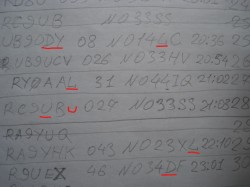 RC9UB NO33SS
UB9ODY 08 NO14LC 20:35
RU9UCV 026 NO33HV 20:54
RY0AAL 31 NO44IQ 21:02
RC9UBU 027 NO33SS 21:08
RA9YUQ
RA9YHK 043 NO23XL 22:10
R9UEX 48 NO34DF 23:01